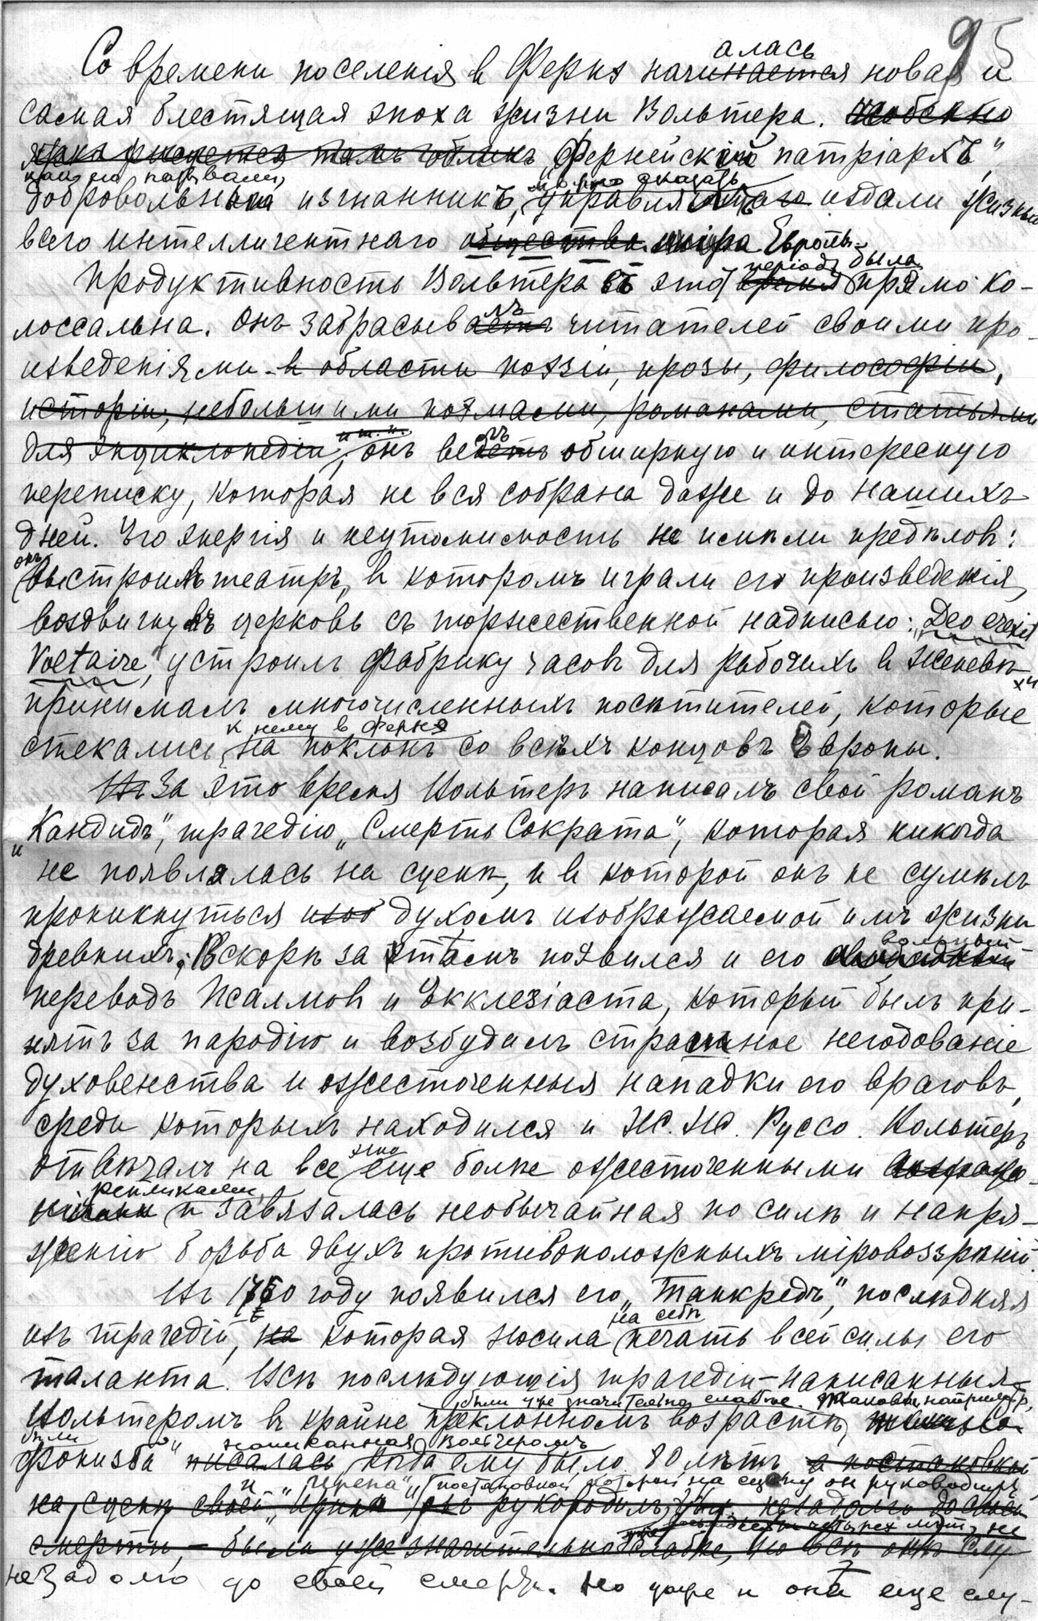 95
Со времени поселенія в Ферне начиналась новая и
самая блестящая эпоха жизни Вольтера. особенно
ярко рисуется тамъ обликъ „Фернейскій патріархъ,"
какъ его называли,
добровольный изгнанникъ, можно сказать управлялъ издали жизнью
всего интеллигентнаго общества міра Европы.
Продуктивность Вольтера въ этотъ періодъ была прямо ко-
лоссальна. Онъ забрасывалъ читателей своими про-
изведеніями в области поэзіи, прозы, философіи,
исторіи, небольшими поэмами, романами, статьями
для энциклопедіи и т. п., онъ велъ обширную и интересную
переписку, которая не вся собрана даже и до нашихъ
дней. Его энергія и неутомимость не имѣли предѣлов:
онъ выстроилъ театръ, в которомъ играли его произведенія,
воздвигнулъ церковь съ торжественной надписью: „Deo erexit
Voltaire," устроилъ фабрику часовъ для рабочихъ в Женевѣ
принималъ многочисленныхъ посѣтителей, которые
стекались к нему в Ферне на поклонъ со всѣхъ концовъ Европы.
За это время Вольтеръ написалъ свой романъ
„Кандидъ", и трагедію „Смерть Сократа", которая никогда
не появлялась на сценѣ, и в которой онъ не сумѣлъ
проникнуться духомъ изображаемой имъ жизни
древнихъ; Вскорѣ за этимъ появился и его вольный
переводъ Псалмов и Экклезіаста, который былъ при-
нятъ за пародію и возбудилъ страшное негодованіе
духовенства и ожесточенныя нападки его враговъ,
среди которыхъ находился и Ж. Ж. Руссо. Вольтеръ
отвѣчалъ на все это еще болѣе ожесточенными
репликами, и завязалась необычайная по силѣ и напря-
женію борьба двухъ противоположныхъ міровоззрѣній.
Въ 1760 году появился его „Танкредъ", послѣдняя
изъ трагедій, которая носила на себѣ печать всей силы его
таланта. Всѣ послѣдующія трагедіи написанныя
Вольтеромъ в крайне преклонномъ возрастѣ, были уже значительно слабѣе. Таковы, напримѣръ,
были
„написанная Вольтеромъ
писалась когда ему было 80 лѣтъ а постановкой
и „Ирена", постановкой которой на сцену он руководилъ
на сценѣ своей „Ирины" онъ руководилъ незадолго до своей
смерти, – были уже значительно слабѣе, но всѣ онѣ
незадолго до своей смерти. Но даже и онѣ еще слу-